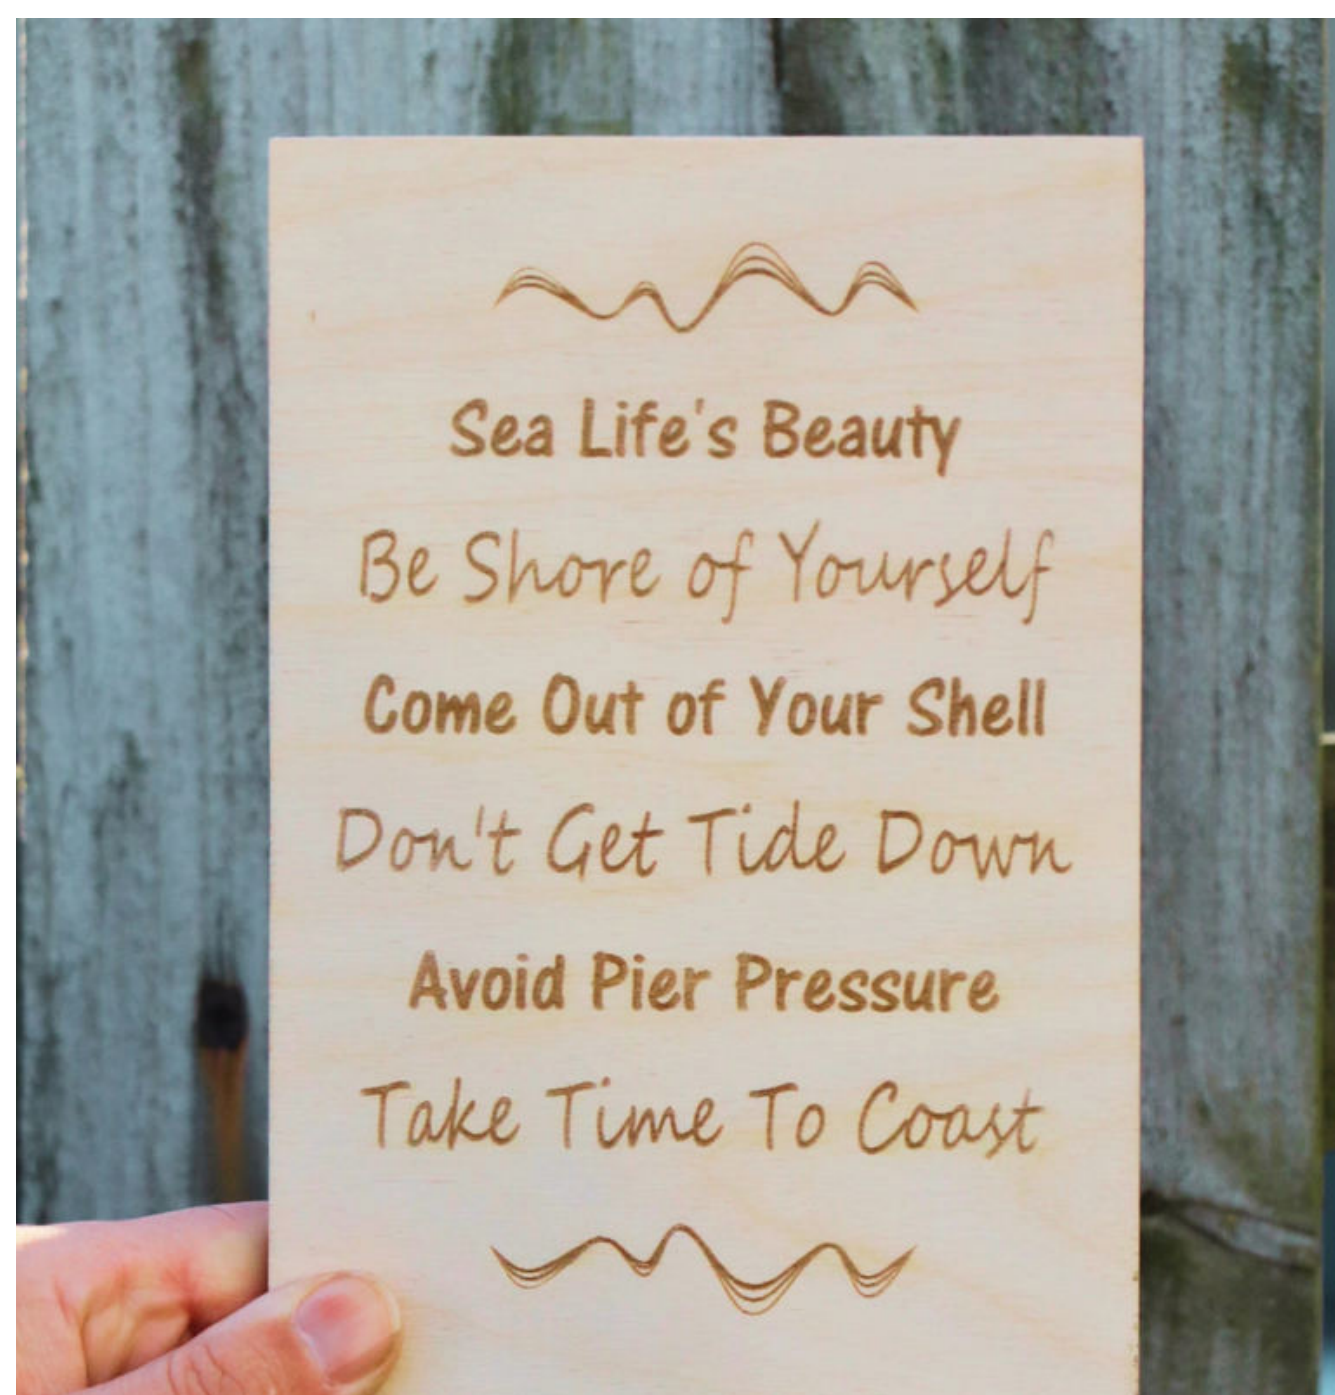 Sea Life's Beauty
Be Shore of Yourself
Come Out of Your Shell
Don't Get Tide Down
Avoid Pier Pressure
Take Time To Coast